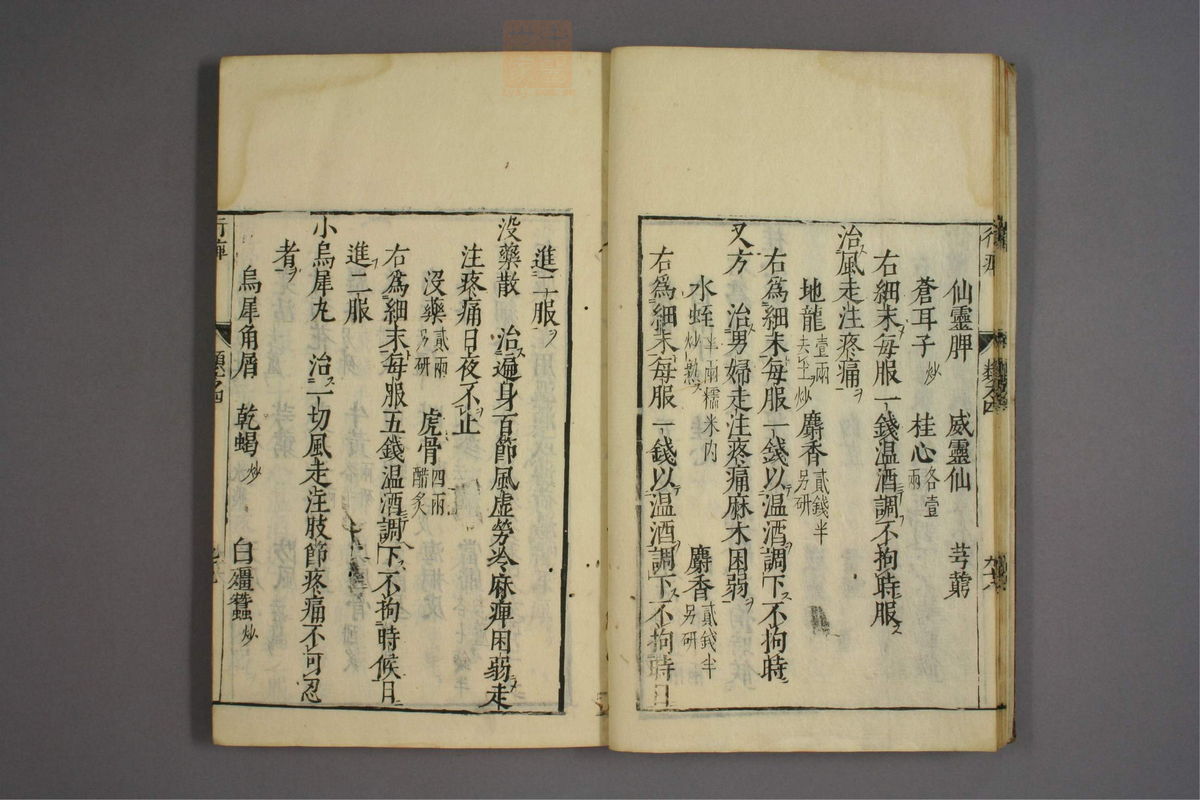 行痺
仙靈脾 威靈仙 芎藭
蒼耳子炒 桂心各壹兩
右細末每服一錢温酒調不拘時服
治風走注疼痛
地龍壹兩去土炒 麝香貳錢半另研
右為細末每服一錢以温酒調下不拘時
又方 治男婦走注疼痛麻木困弱
水蛭半兩糯米内炒熟 麝香貳錢半另研
右爲細末每服一錢以温酒調下不拘時日
進二服
没藥散 治遍身百節風虚勞冷麻痺困弱走
注疼痛日夜不止
没藥貳兩另研 虎骨四兩醋炙
右爲細末每服五錢温酒調下不拘時候日
進二服
小烏犀丸 治一切風走注肢節疼痛不可忍
者
烏犀角屑 乾蝎炒 白殭蠶炒
行痺